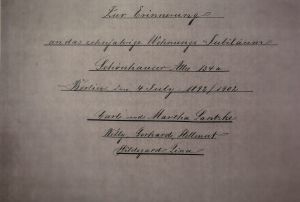 Zur Erinnerung
an das zehnjährige Wohnungs-Jubiläum
Schönhauser Allee 134a
Berlin den 4 July 1892/1902
Carl und Martha
Willy, Gerhard, Hellmut
Hildegard